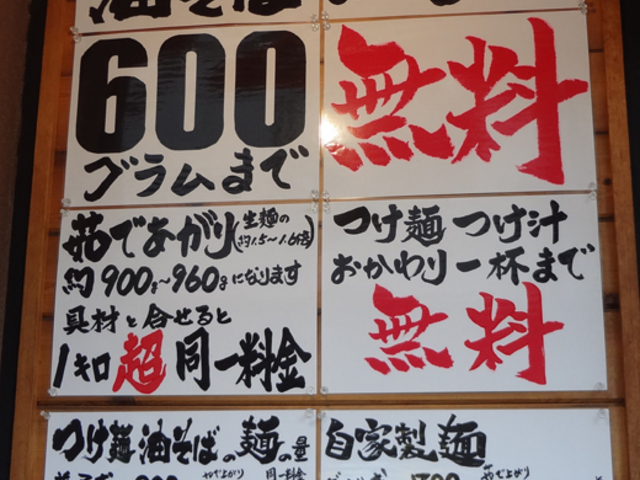 油そば
600
グラムまで
無料
茹であがり(生麺の
約1.5〜1.6倍)
約900g〜960gになります
具材と合せると
1キロ超同一料金
つけ麺 つけ汁
おかわり一杯まで
無料
つけ麺油そばの麺の量
茹で上がり
同一料金
自家製麺
茹で上がり